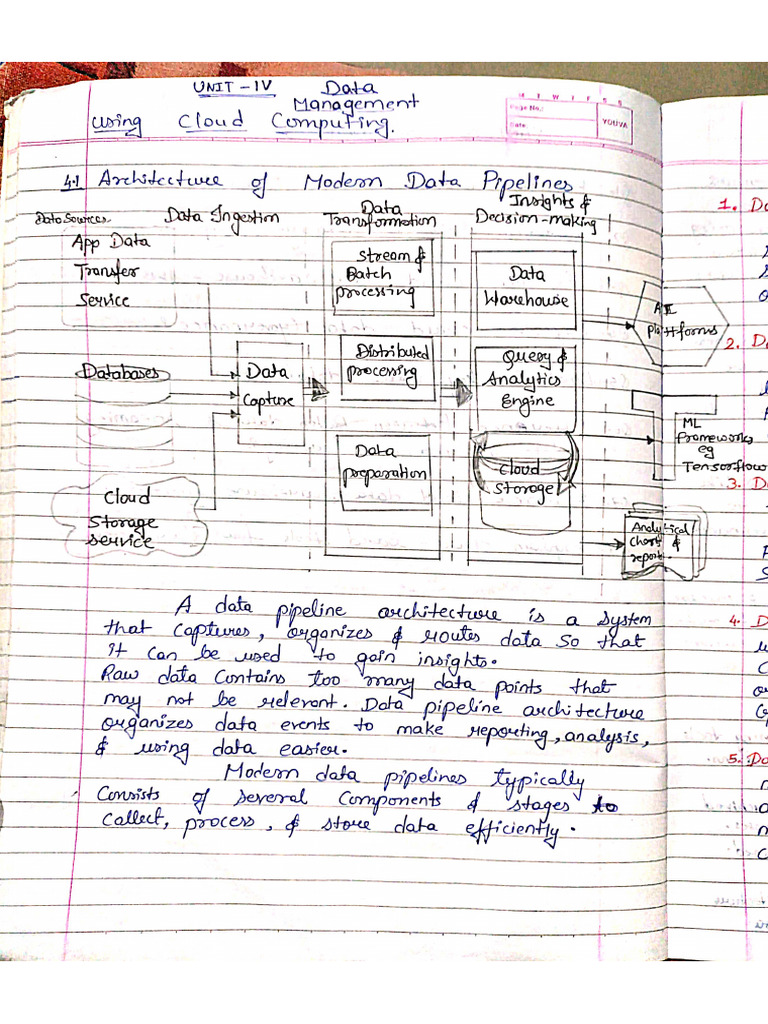 UNIT - IV Data
Management
using Cloud Computing.
M T W T F S S
Page No.:
Date:
YOUVA
4.1 Architecture of Modern Data Pipelines
Data Sources
Data Ingestion
Data
Transformation
Insights &
Decision-making
App Data
Transfer
Service
Databases
Cloud
Storage
Service
Data
Capture
Stream &
Batch
processing
Distributed
processing
Data
preparation
Data
Warehouse
Query &
Analytics
Engine
Cloud
Storage
Platforms
ML
Frameworks
eg
Tensorflow
Analytical
Charts &
reports
A data pipeline architecture is a system
that captures, organizes & routes data so that
it can be used to gain insights.
Raw data contains too many data points that
may not be relevant. Data pipeline architecture
organizes data events to make reporting, analysis,
& using data easier.
Modern data pipelines typically
Consists of several Components & stages to
collect, process, & store data efficiently.
1. Da
2. Da
3. D
4. D
5. Da